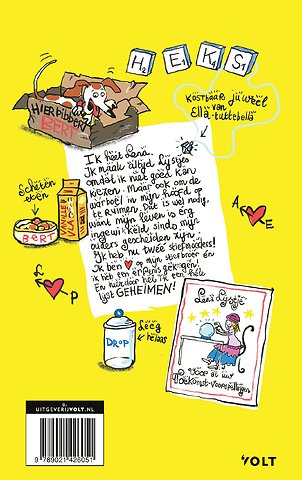 HEKS
KOSTBAAR JUWEEL
van
Ella-tuttebella
HIER BIDDEN
BERT
Ik heet Lena.
Ik maak altijd lijstjes
omdat ik niet goed kan
kiezen. Maar ook om de
warboel in mijn hoofd op
te ruimen. Dat is wel nodig,
want mijn leven is erg
ingewikkeld sinds mijn
ouders gescheiden zijn.
Ik heb nu twee stiefmoeders!
Ik ben ♥ op mijn stiefbroer én
ik heb een erfenis gekregen!
En hierdoor heb ik een hele
lijst GEHEIMEN!
scheten
eten
BERT
VANILLE
VLA
A
E
L
P
DROP
Leeg
helaas
Lena's Lijstje
Voor al uw
Toekomst-voorspellingen
UITGEVERIJVOLT.NL
9 789021 426051
VOLT